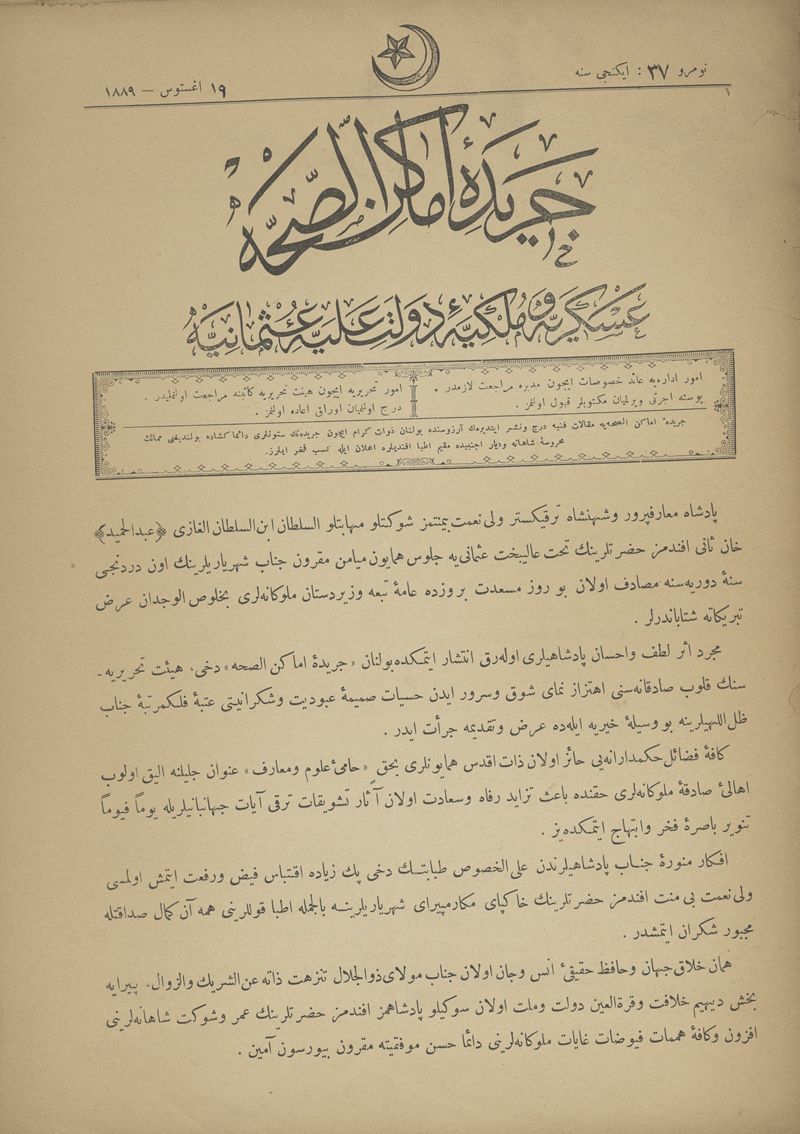 نومرو ٣٧ : ايكنجى سنه
١٩ اغستوس — ١٨٨٩
جريدهٔ اماكن الصحه
عسكريه و ملكيهٔ دولت عليهٔ عثمانيه
امور اداره‌يه عائد خصوصات ايچون مديره مراجعت لازمدر .
پوسته اجرتى ويرلميان مكتوبلر قبول اولنمز .
امور تحريريه ايچون هيئت تحريريه كاتبنه مراجعت اولنمليدر .
درج اولنميان اوراق اعاده اولنمز .
جريدهٔ اماكن الصحه‌يه مقالات فنيه درج ونشر ايتديرمك آرزوسنده بولنان ذوات كرام ايچون جريده‌نك ستونلرى دائما كشاده بولنديغنى ممالك
محروسهٔ شاهانه وديار اجنبيده مقيم اطبا افنديلره اعلان ايله كسب فخر ايلرز.
پادشاه معارفپرور وشهنشاه ترقيكستر ولى نعمت بيمنتمز شوكتلو مهابتلو السلطان ابن السلطان الغازى ﴿عبدالحميد﴾
خان ثانى افندمز حضرتلرينك تخت عاليبخت عثمانى‌يه جلوس همايون ميامن مقرون جناب شهريارلرينك اون دردنجى
سنهٔ دوريه‌سنه مصادف اولان بو روز مسعدت بروزده عامهٔ تبعه وزيردستان ملوكانه‌لرى بخلوص الوجدان عرض
تبريكاته شتاباندرلر .
مجرد اثر لطف واحسان پادشاهيلرى اوله‌رق انتشار ايتمكده بولنان «جريدهٔ اماكن الصحه» دخى، هيئت تحريريه-
سنك قلوب صادقانه‌سنى اهتزاز نماى شوق وسرور ايدن حسيات صميمهٔ عبوديت وشكرانيتى عتبهٔ فلكمرتبهٔ جناب
ظل اللهيلرينه بو وسيلهٔ خيريه ايله‌ده عرض وتقديمه جرأت ايدر .
كافهٔ فضائل حكمدارانه‌يى حائز اولان ذات اقدس همايونلرى بحق «حامىٔ علوم ومعارف» عنوان جليلنه اليق اولوب
اهالىٔ صادقهٔ ملوكانه‌لرى حقنده باعث تزايد رفاه وسعادت اولان آثار تشويقات ترقى آيات جهانبانيلريله يوماً فيوماً
تنوير باصرهٔ فخر وابتهاج ايتمكده‌يز .
افكار منورهٔ جناب پادشاهيلرندن على الخصوص طبابتك دخى پك زياده اقتباس فيض ورفعت ايتمش اولمسى
ولى نعمت بى منت افندمز حضرتلرينك خاكپاى مكارمپيراى شهريارلرينه بالجمله اطبا قوللرينى همه آن كمال صداقتله
مجبور شكران ايتمشدر .
همان خلاق جهان وحافظ حقيقىٔ انس وجان اولان جناب مولاى ذوالجلال تنزهت ذاته عن الشريك والزوال، پيرايه
بخش ديهيم خلافت وقرة العين دولت وملت اولان سوكيلو پادشاهمز افندمز حضرتلرينك عمر وشوكت شاهانه‌لرينى
افزون وكافهٔ همات فيوضات غايات ملوكانه‌لرينى دائما حسن موفقيته مقرون بيورسون آمين .